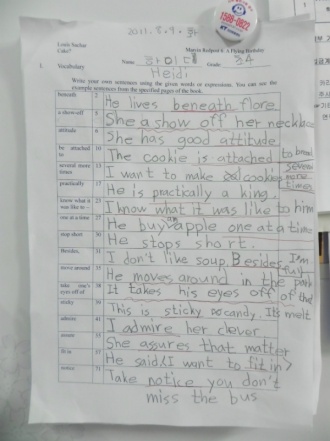 2011. 8. 9. 화
1588-0822
Louis Sachar
Marvin Redpost 6. A Flying Birthday
Cake?
Name 하이디 Grade: 초4
Heidi
I. Vocabulary
Write your own sentences using the given words or expressions. You can see the
example sentences from the specified pages of the book.
beneath 2 He lives beneath flore
a show-off 8 She a show off her necklace
attitude She has good attitude
be attached to 10 The cookie is attached to bread
several more times 13 I want to make cooking several more times
practically 17 He is practically a king.
know what it was like to ~ 23 I know what it was like to him
one at a time He buy an apple one at a time
stop short He stops short.
Besides, I don't like soup. Besides I'm full
move around He moves around in the park
take one's eyes off of It takes his eyes off of the
sticky This is sticky candy. It's melt
admire I admire her clever
assure She agures that matter
fit in He said "I want to fit in"
notice Take notice you don't
miss the bus